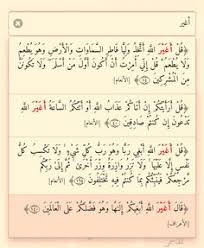 أغير
﴿قُلْ أَغَيْرَ اللَّهِ أَتَّخِذُ وَلِيًّا فَاطِرِ السَّمَاوَاتِ وَالْأَرْضِ وَهُوَ يُطْعِمُ
وَلَا يُطْعَمُ قُلْ إِنِّي أُمِرْتُ أَنْ أَكُونَ أَوَّلَ مَنْ أَسْلَمَ وَلَا تَكُونَنَّ
مِنَ الْمُشْرِكِينَ ﴿١٤﴾﴾ [الأنعام]
﴿قُلْ أَرَأَيْتَكُمْ إِنْ أَتَاكُمْ عَذَابُ اللَّهِ أَوْ أَتَتْكُمُ السَّاعَةُ أَغَيْرَ اللَّهِ
تَدْعُونَ إِنْ كُنْتُمْ صَادِقِينَ ﴿٤٠﴾﴾ [الأنعام]
﴿قُلْ أَغَيْرَ اللَّهِ أَبْغِي رَبًّا وَهُوَ رَبُّ كُلِّ شَيْءٍ وَلَا تَكْسِبُ كُلُّ
نَفْسٍ إِلَّا عَلَيْهَا وَلَا تَزِرُ وَازِرَةٌ وِزْرَ أُخْرَى ثُمَّ إِلَى رَبِّكُمْ
مَرْجِعُكُمْ فَيُنَبِّئُكُمْ بِمَا كُنْتُمْ فِيهِ تَخْتَلِفُونَ ﴿١٦٤﴾﴾ [الأنعام]
﴿قَالَ أَغَيْرَ اللَّهِ أَبْغِيكُمْ إِلَهًا وَهُوَ فَضَّلَكُمْ عَلَى الْعَالَمِينَ ﴿١٤٠﴾﴾
[الأعراف]